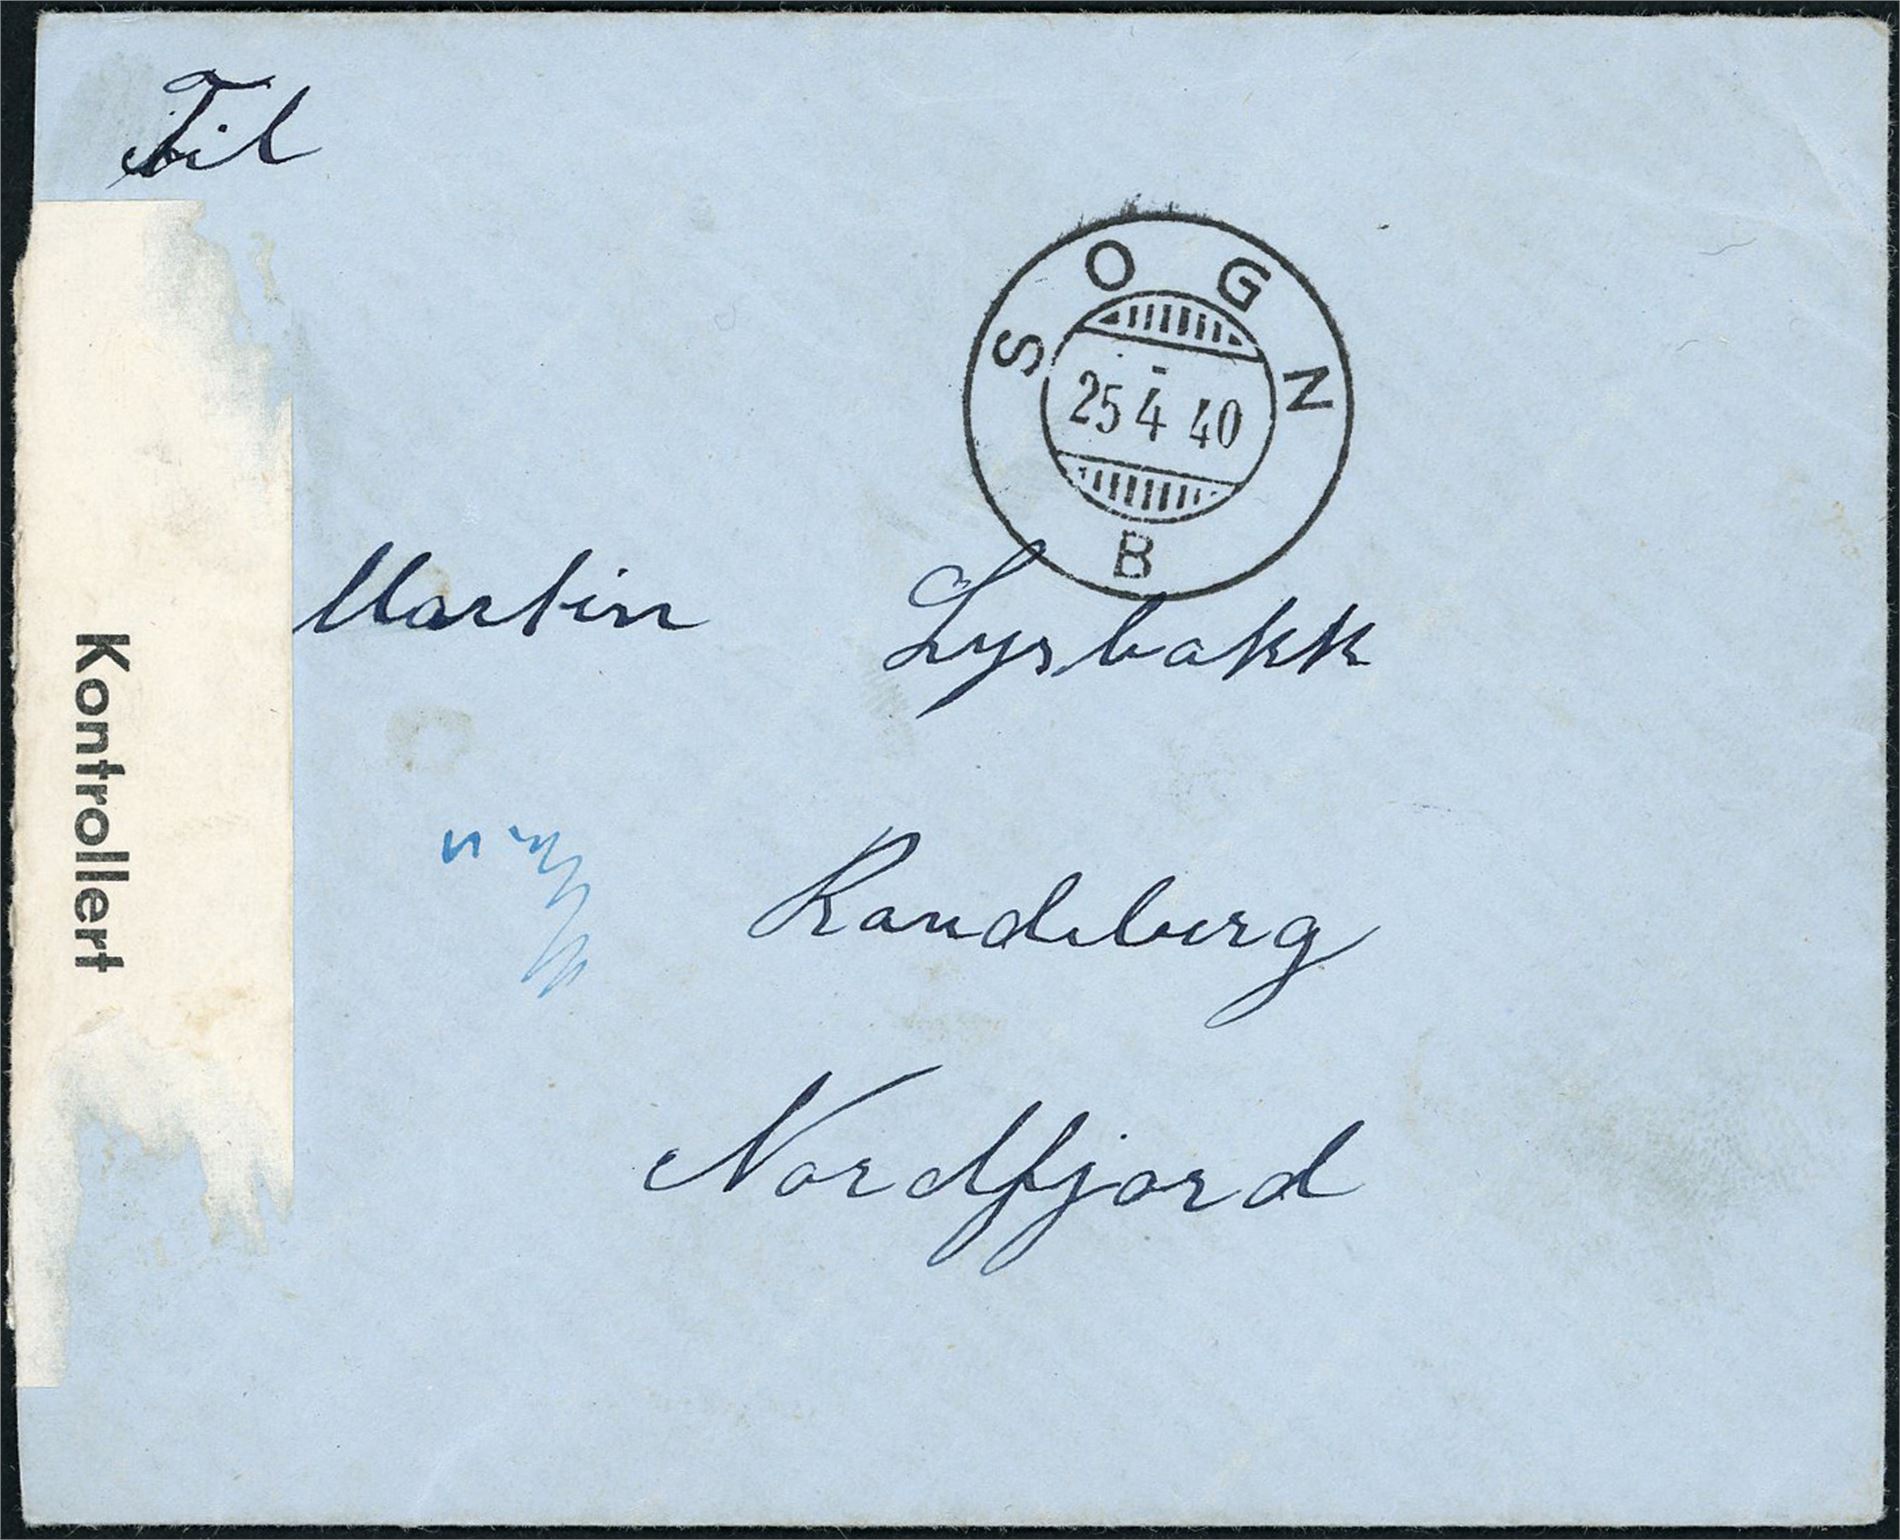 Til
SOGN
25 4 40
B
Martin Lysbakk
Randeberg
Nordfjord
Kontrollert